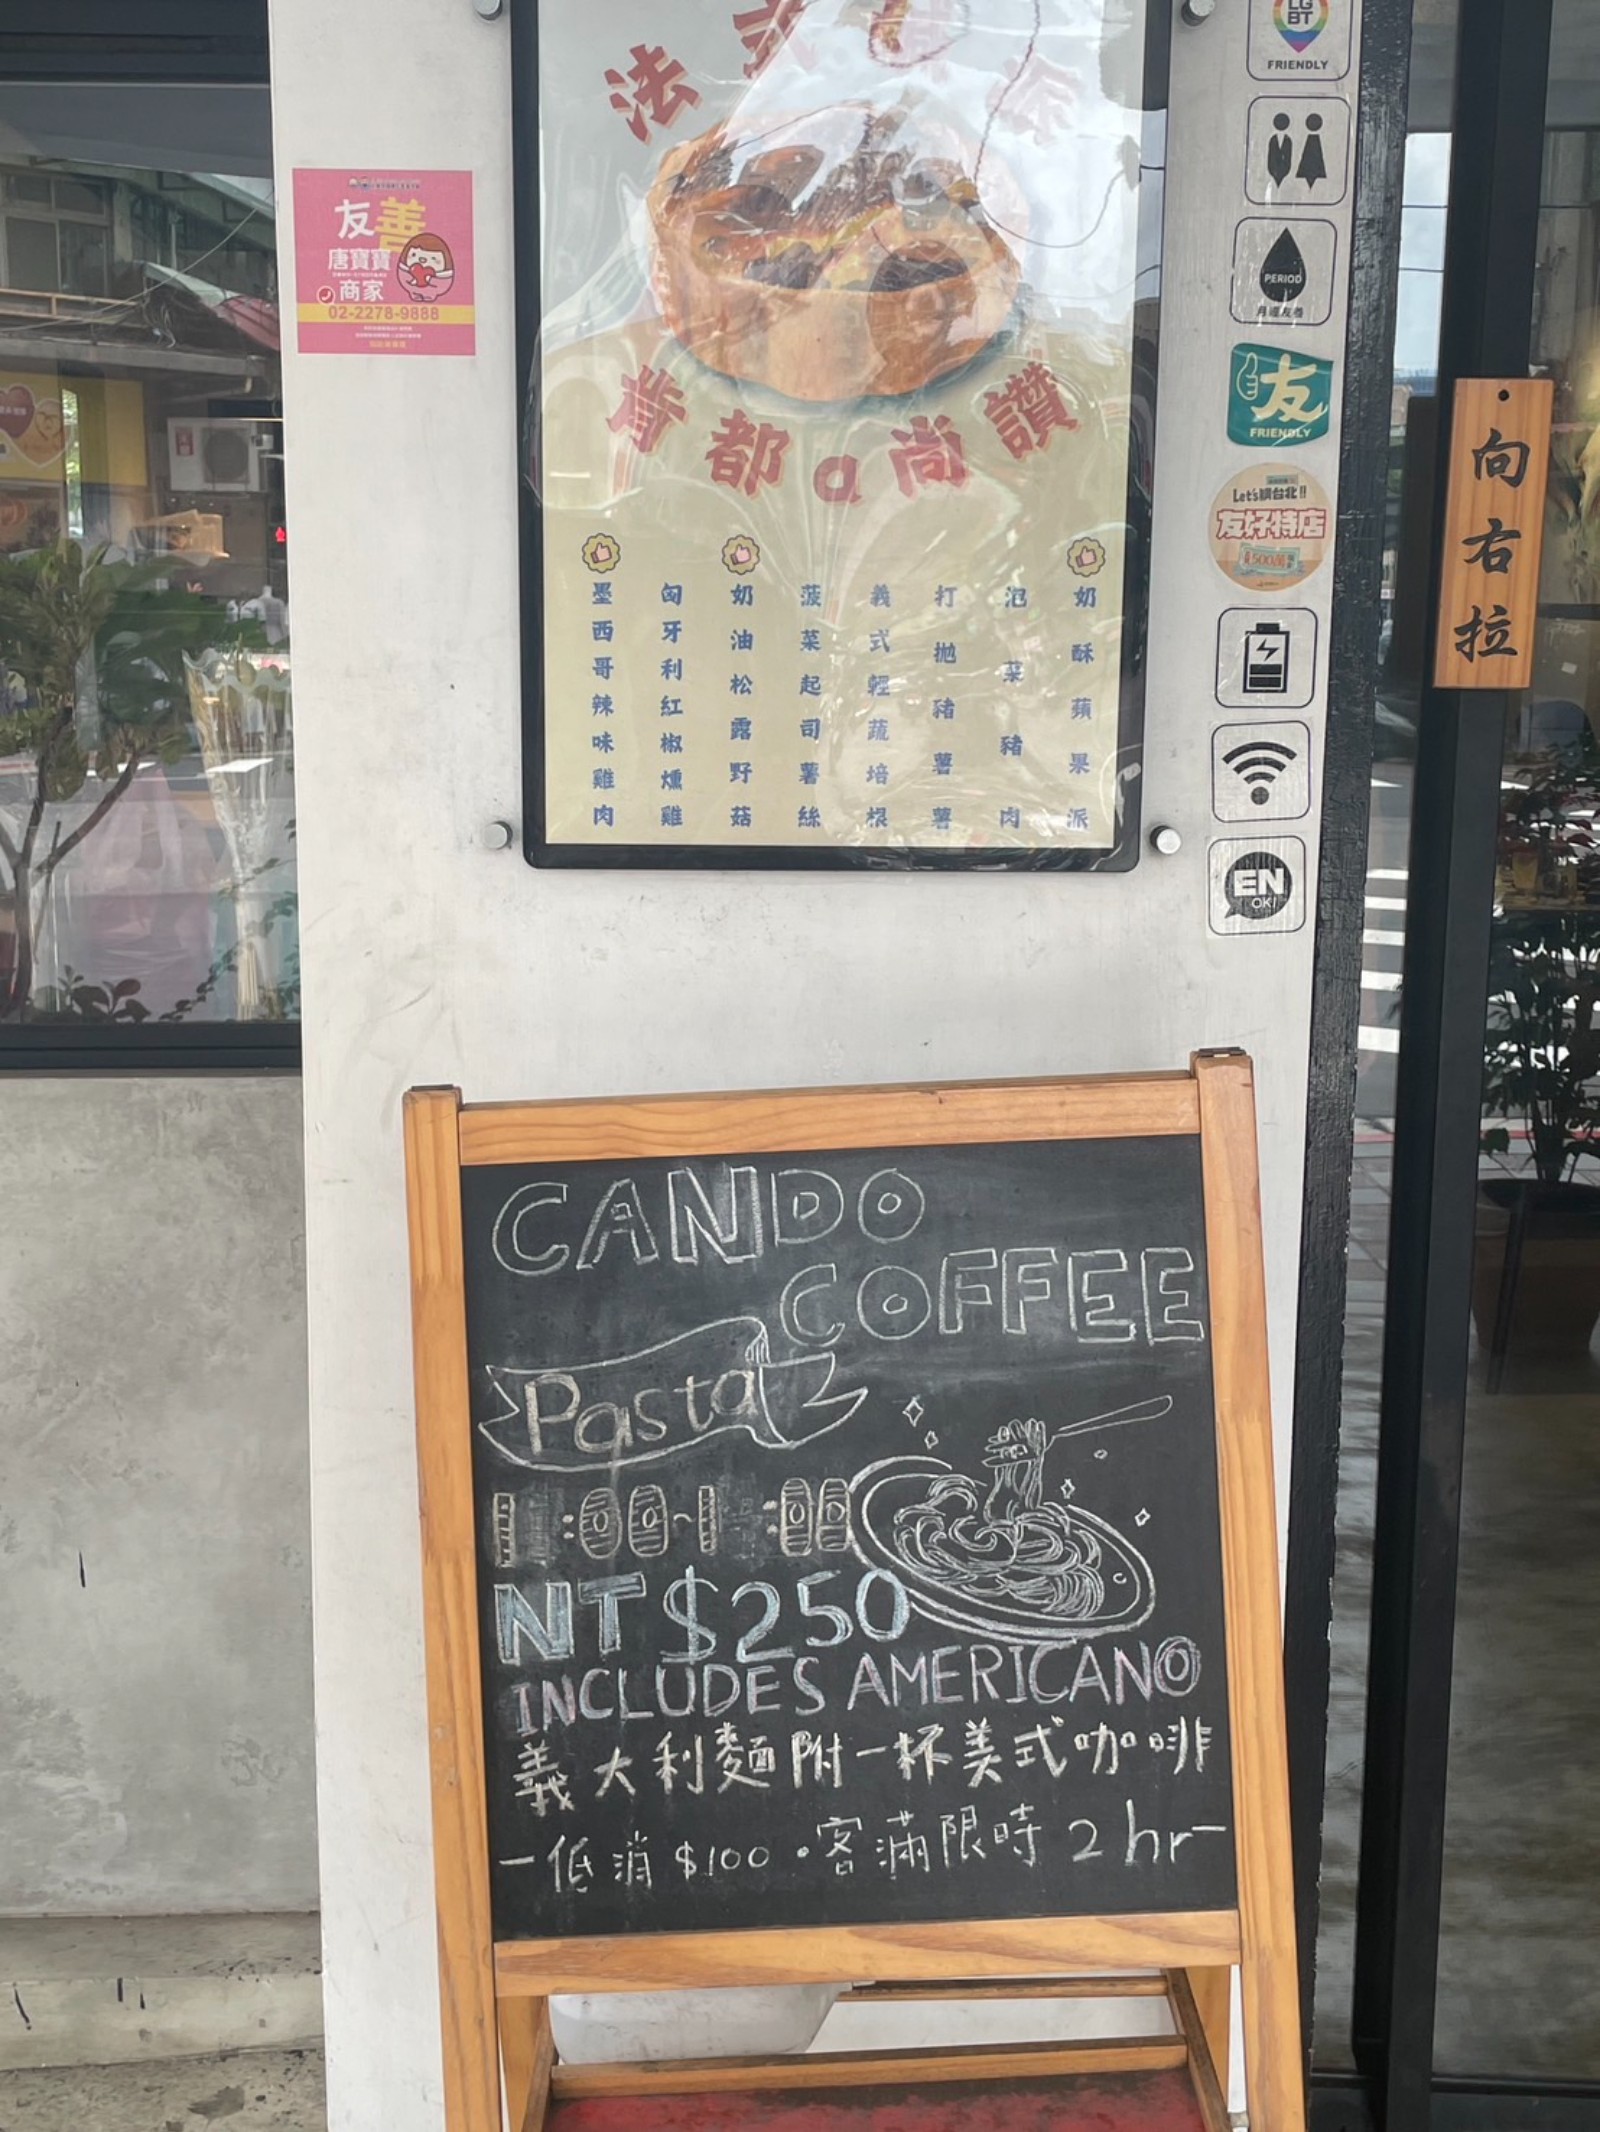 法式
青都a尚讚
墨西哥辣味雞肉
匈牙利紅椒燻雞
奶油松露野菇
菠菜起司薯絲
義式輕蔬培根
打拋豬薯薯
泡菜豬肉
奶酥蘋果派
友善
唐寶寶
商家
02-2278-9888
LG
BT
FRIENDLY
PERIOD
月經友善
友
FRIENDLY
Let's購台北!!
友好特店
500萬
EN
OK!
向右拉
CANDO
COFFEE
Pasta
NT$250
INCLUDES AMERICANO
義大利麵附一杯美式咖啡
-低消$100·客滿限時2hr-